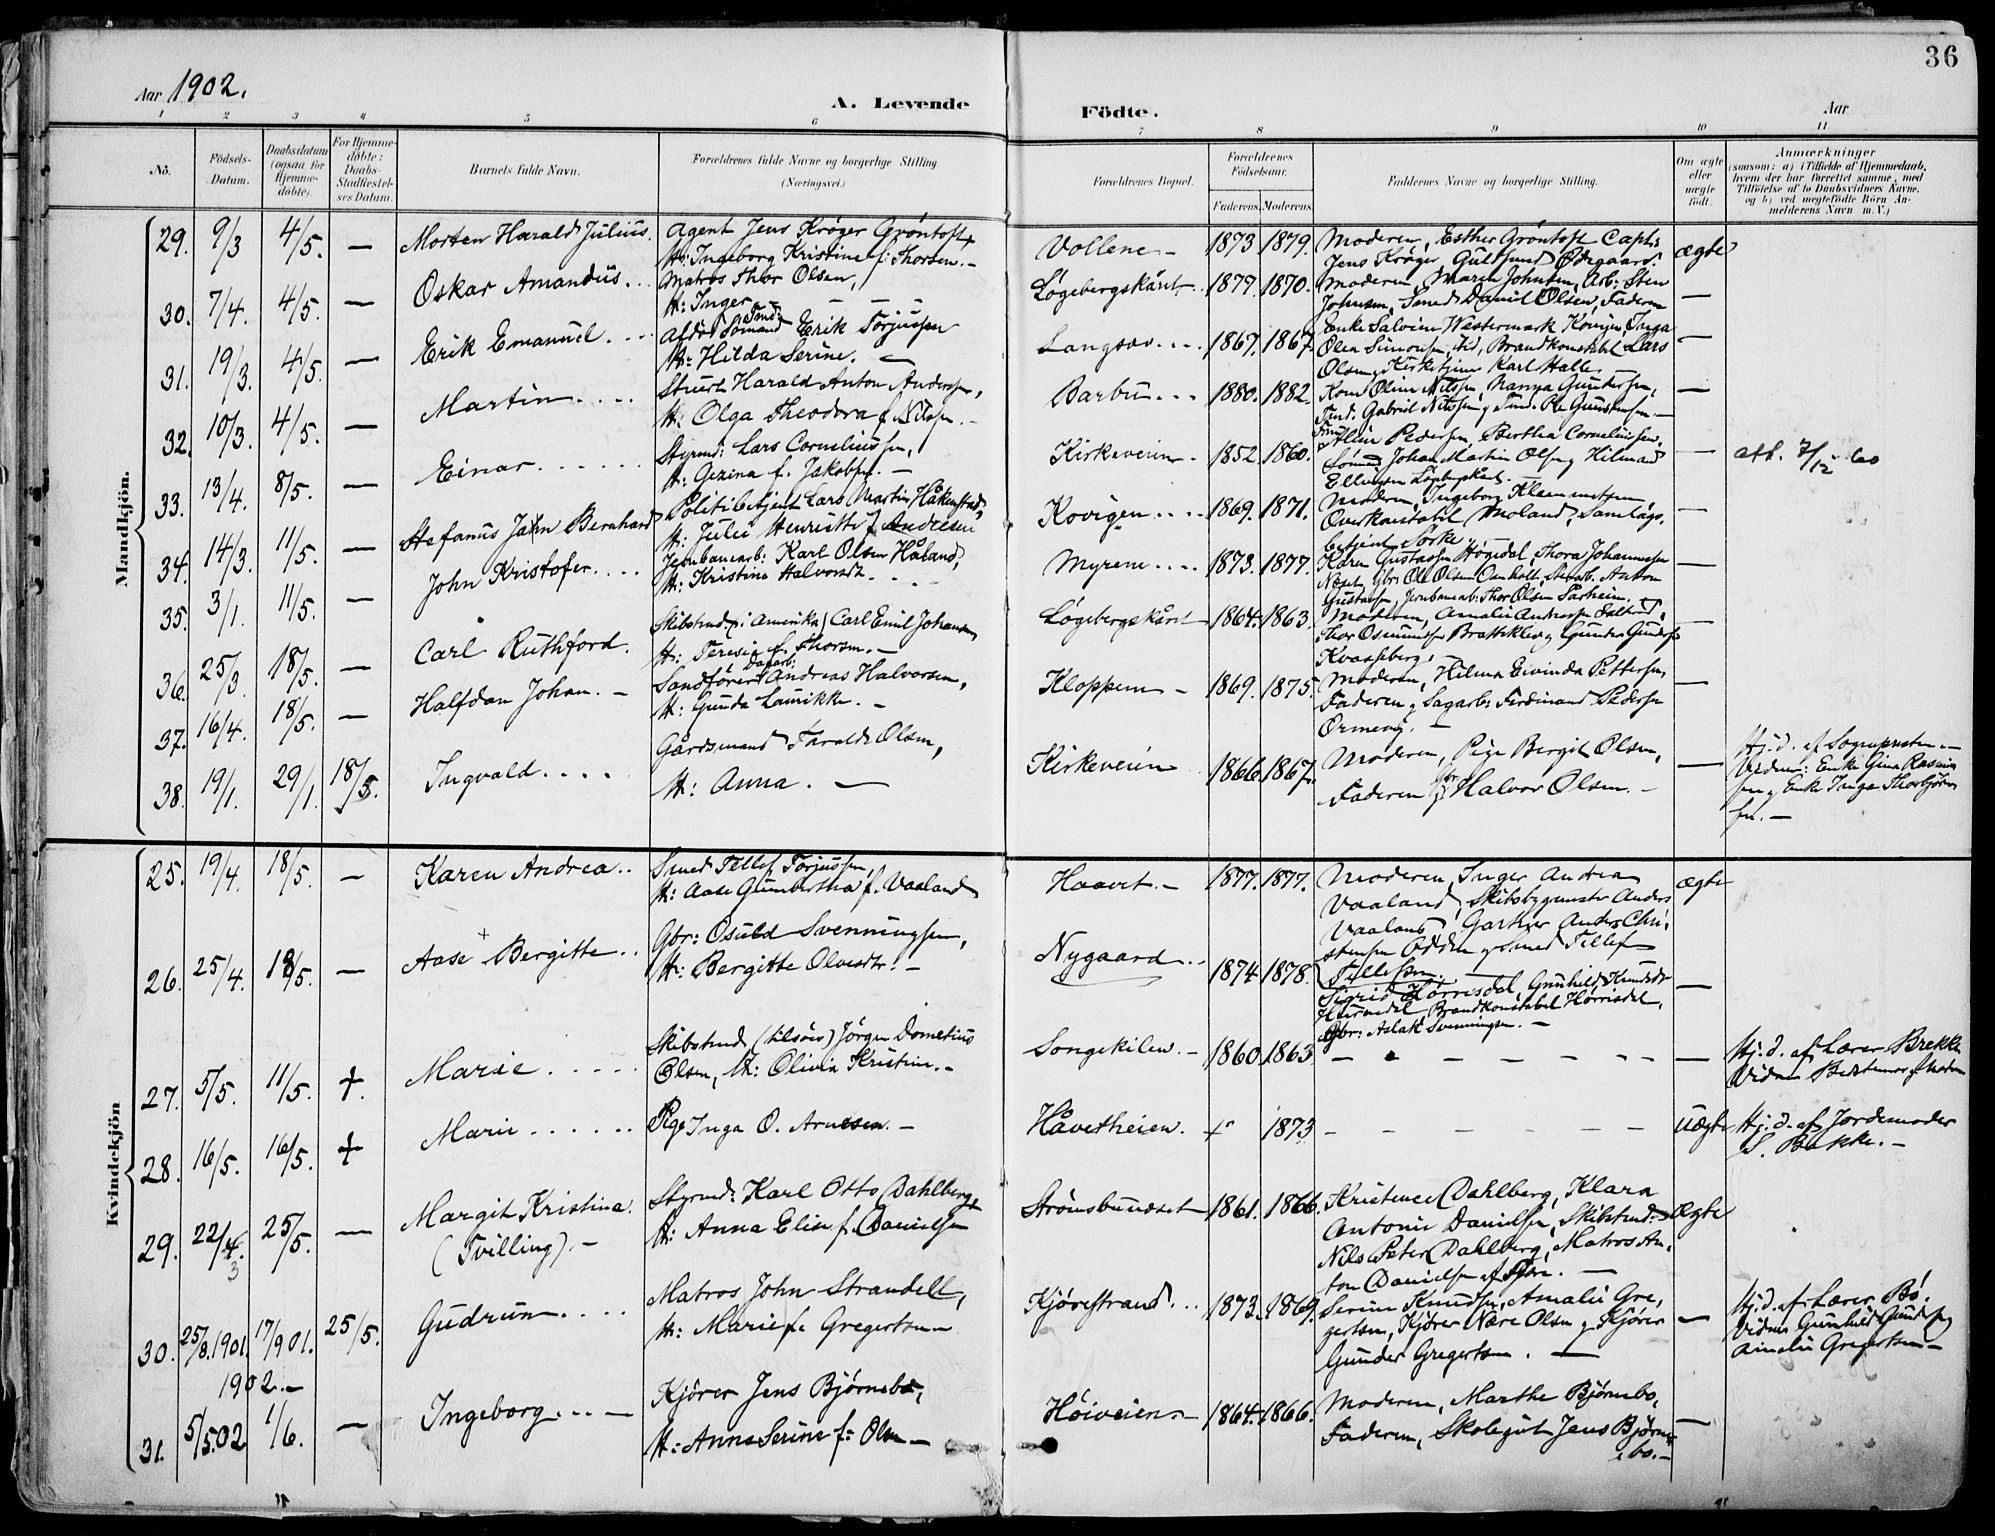 36
Aar 1902.
A. Levende
Födte.
Aar
1 2 3 4 5 6 7 8 9 10 11
No.
Födsels-Datum.
Daabsdatum (ogsaa for Hjemmedöbte).
For Hjemmedöbte: Daabs-Stadfæstelses Datum.
Barnets fulde Navn.
Forældrenes fulde Navne og borgerlige Stilling (Næringsvei.)
Forældrenes Bopæl.
Forældrenes Födselsaar.
Faderens. Moderens.
Faddernes Navne og borgerlige Stilling.
Om ægte eller uægte födt.
Anmærkninger
(saasom: a) i Tilfælde af Hjemmedaab, hvem der har forrettet samme, med Tilföielse af to Daabsvidners Navne. og b) ved uægtefödte Börn Anmelderens Navn m. V.)
Mandkjön.
29. 9/3 4/5. — Morten Harald Julius. Agent Jens Krøger Grøntoft
H: Ingeborg Kristine f: Thorsen.— Vollene— 1873 1879. Moderen, Esther Grøntoft Capt:
Jens Krøger, Gulsund Ødegaard. ægte
30. 7/4. 4/5. — Oskar Amandus.. Matros Thor Olsen,
H: Inger — — — Løgebergskåret.. 1879. 1870. Moderen, Maren Johnsen, Arb: Sten
Johnsen, Smed Daniel Olsen, Faderen —
31. 19/3. 4/5. — Erik Emanuel. ... Afdöd Sömand Erik Torjussen
H: Hilda Serine. — Langsæv.... 1867. 1867. Enke Salvine Westermark Kovigen, Inga
Olea Simonsen, ibid, Brandkonstabel Lars
Olsen, Kirketjener Karl Halle —
32. 10/3. 4/5. — Martin.... Stuert Harald Anton Andersen,
H: Olga Theodora f. Nilsen.— Barbu... 1880. 1882. Kone Oline Nilsen, Nanna Gundersen,
Tmd: Gabriel Nilssen, Tmd. Ole Gundersen.— —
33. 13/4. 8/5. — Einar...... Styrmd: Lars Corneliussen,
H: Gezina f. Jakobsen.— Kirkeveien. 1852. 1860. Aline Pedersen, Bertha Corneliussen,
Sömd Johan Martin Olsen, Hilmar
Ellingsen — att. 7/12 60
34. 14/3. 11/5. — Stefanus Jahn Bernhard Politibetjent Lars Martin Håkenstad,
H: Julie Henriette f. Andersen Kovigen.... 1869. 1871. Moderen, Ingeborg Klemmetsen,
Overkonstabel Moland, Samlags.
betjent Sörke —
35. 3/1. 11/5. — John Kristofer.... Jernbanearb: Karl Olsen Håland,
H: Kristine Halvorsdt. Myrene.... 1873. 1877. Karen Gustavsen Høgedal, Thora Johannessen
Næset, Gbr: Ole Olsen, Anton
Gustavsen, Jernbanearb: Thor Olsen —
36. 25/3. 18/5. — Carl Ruthford. Skibstmd. (i Amerika) Carl Emil Johansen
H: Teresie f. Thorsen.— Løgebergskåret 1864. 1863. Moderen, Amalie Andersen
Thor Osmundsen Bratteklev, Gunder Gundersen
Kvaggeberg. —
37. 16/4. 18/5. — Halfdan Johan.— Sandförer Andreas Halvorsen,
H: Gunda Laurikke.— Kloppene— 1869. 1875. Moderen, Hilma Eivinda Pettersen,
Faderen, Sagarb: Ferdinand Pedersen
—
38. 19/1. 29/1. 18/5. Ingvald.... Gårdsmand Tarald Olsen,
H: Anna.— Kirkeveien 1866. 1867. Moderen, Pige Bergit Olsen,
Faderen, Gbr. Halvor Olsen.— — Hj. d. af Sogneprsten.—
Vidner: Enke Gina Rasmussen
y Enke Inga Thorbjörnsen.—
Kvindekjön
25. 19/4. 18/5. — Karen Andrea.. Smed Tellef Torjussen,
H: Aase Gunbertha f. Vaaland Haavet.— 1877. 1877. Moderen, Inger Andrea
Vaaland, Skibsbygmester Anders
Vaaland, Gartner Anders Christensen y Smed Tellef
Tellefsen. ægte
26. 25/4. 18/5. — Aase Bergitte.. Gbr: Osuld Svenningsen,
H: Bergitte Olvesdtr.— Nygaard.. 1874 1878. Sigrid Hörrisdal, Gunhild Knudsdtr
Brandkonstabel Hörrisdal,
Gbr: Aslak Svenningsen.— —
27. 5/5. 11/5. +. Marie..... Skibstmd (tilsöes) Jörgen Dometius
Olsen, H: Olivia Kristine.— Songekilen.— 1860. 1863. — — — — — — Hj. d. af Lærer Brekke
Vidner Bedstemor y Moderen
28. 16/5. 16/5. + Marie...... Pige Inga O. Arnesen.— Håvetheien. + 1873 — — — — — uægte Hj. d. af Jordemoder
S. Bakke.—
29. 22/4. 3 25/5. — Margit Kristina.
(Tvilling).— Styrmd: Karl Otto Dahlberg,
H: Anna Elise f. Danielsen Strömsbunæset 1861. 1866. Kristence Dahlberg, Klara
Antonie Danielsen, Skibstmd:
Nils Peter Dahlberg, Matros Anton Danielsen af Fjære.— ægte
30. 25/8.1901. 17/9 01. 25/5. Gudrun.... Matros John Strandell,
H: Marie f. Gregertsen Kjøvestrand... 1873. 1869. Serine Knudsen, Amalie Gregertsen, Kjörer Nære Olsen y Kjörer
Gunder Gregertsen.— — Hj. d. af Lærer Bö.
Vidner Gunhild Gundersen y
Amalie Gregertsen—
1902.—
31. 5/5.02 1/6. — Ingeborg...— Kjörer Jens Björnebo,
H: Anne Serine f: Olsen— Höiveien.— 1864. 1866. Moderen, Marthe Björnebo,
Faderen, Skolegut Jens Björnebo.— —